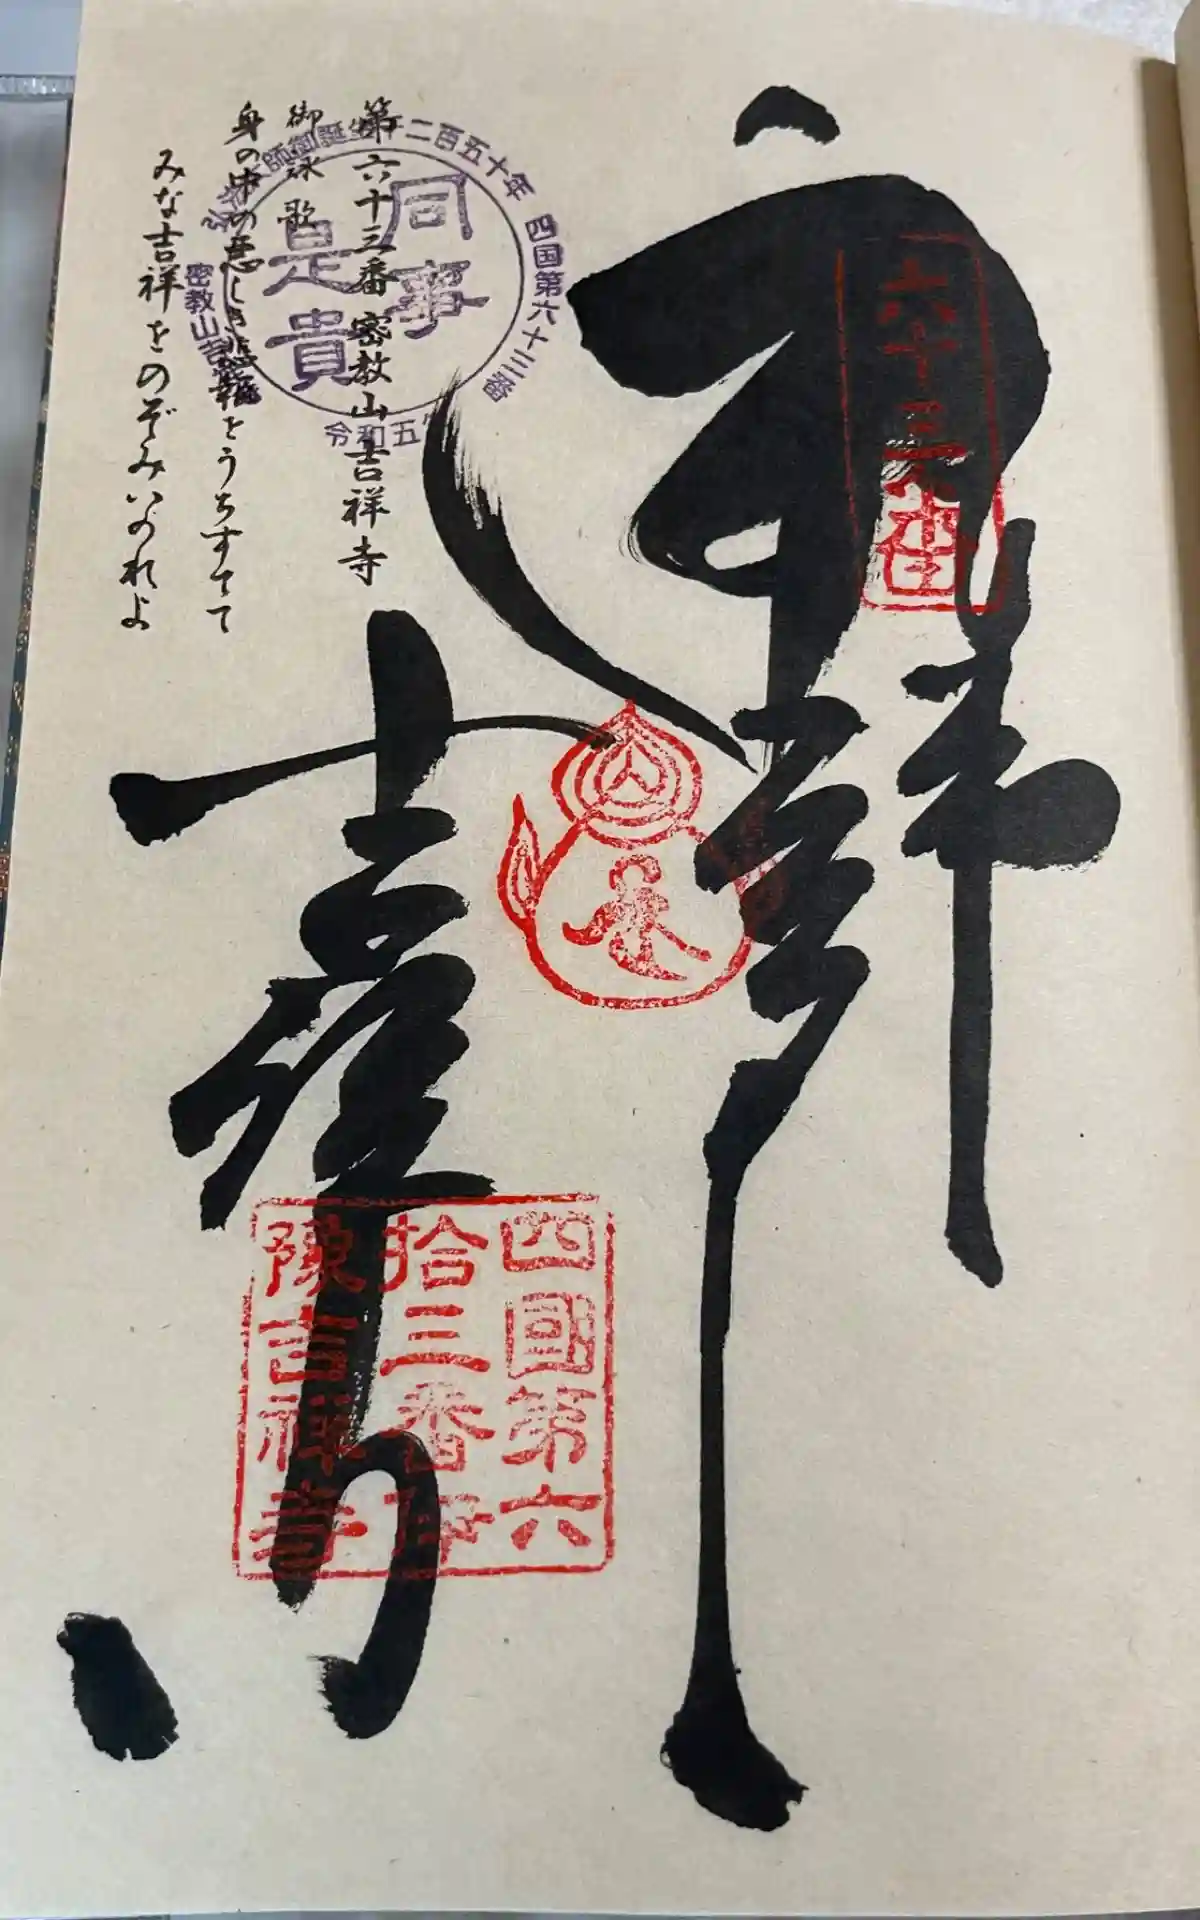 奉拝
六十三番
四國第六
拾三番伊
豫吉祥寺
第六十三番 密教山吉祥寺
御詠歌
身の中の悪しき悲報をうちすてて
みな吉祥をのぞみいのれよ
弘法大師御誕生千二百五十年
四国第六十三番
密教山吉祥寺
令和五年
同事
是貴